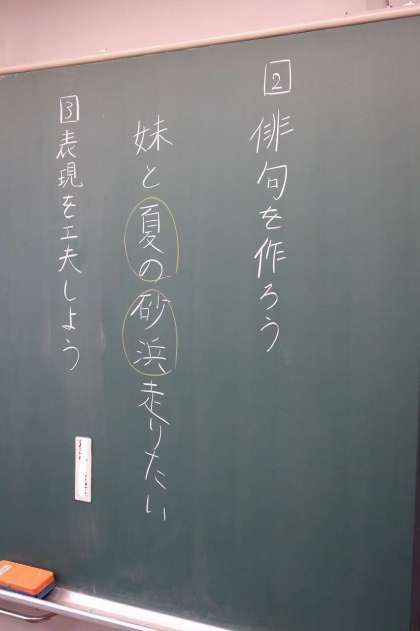 2 俳句を作ろう
妹と夏の砂浜走りたい
3 表現を工夫しよう